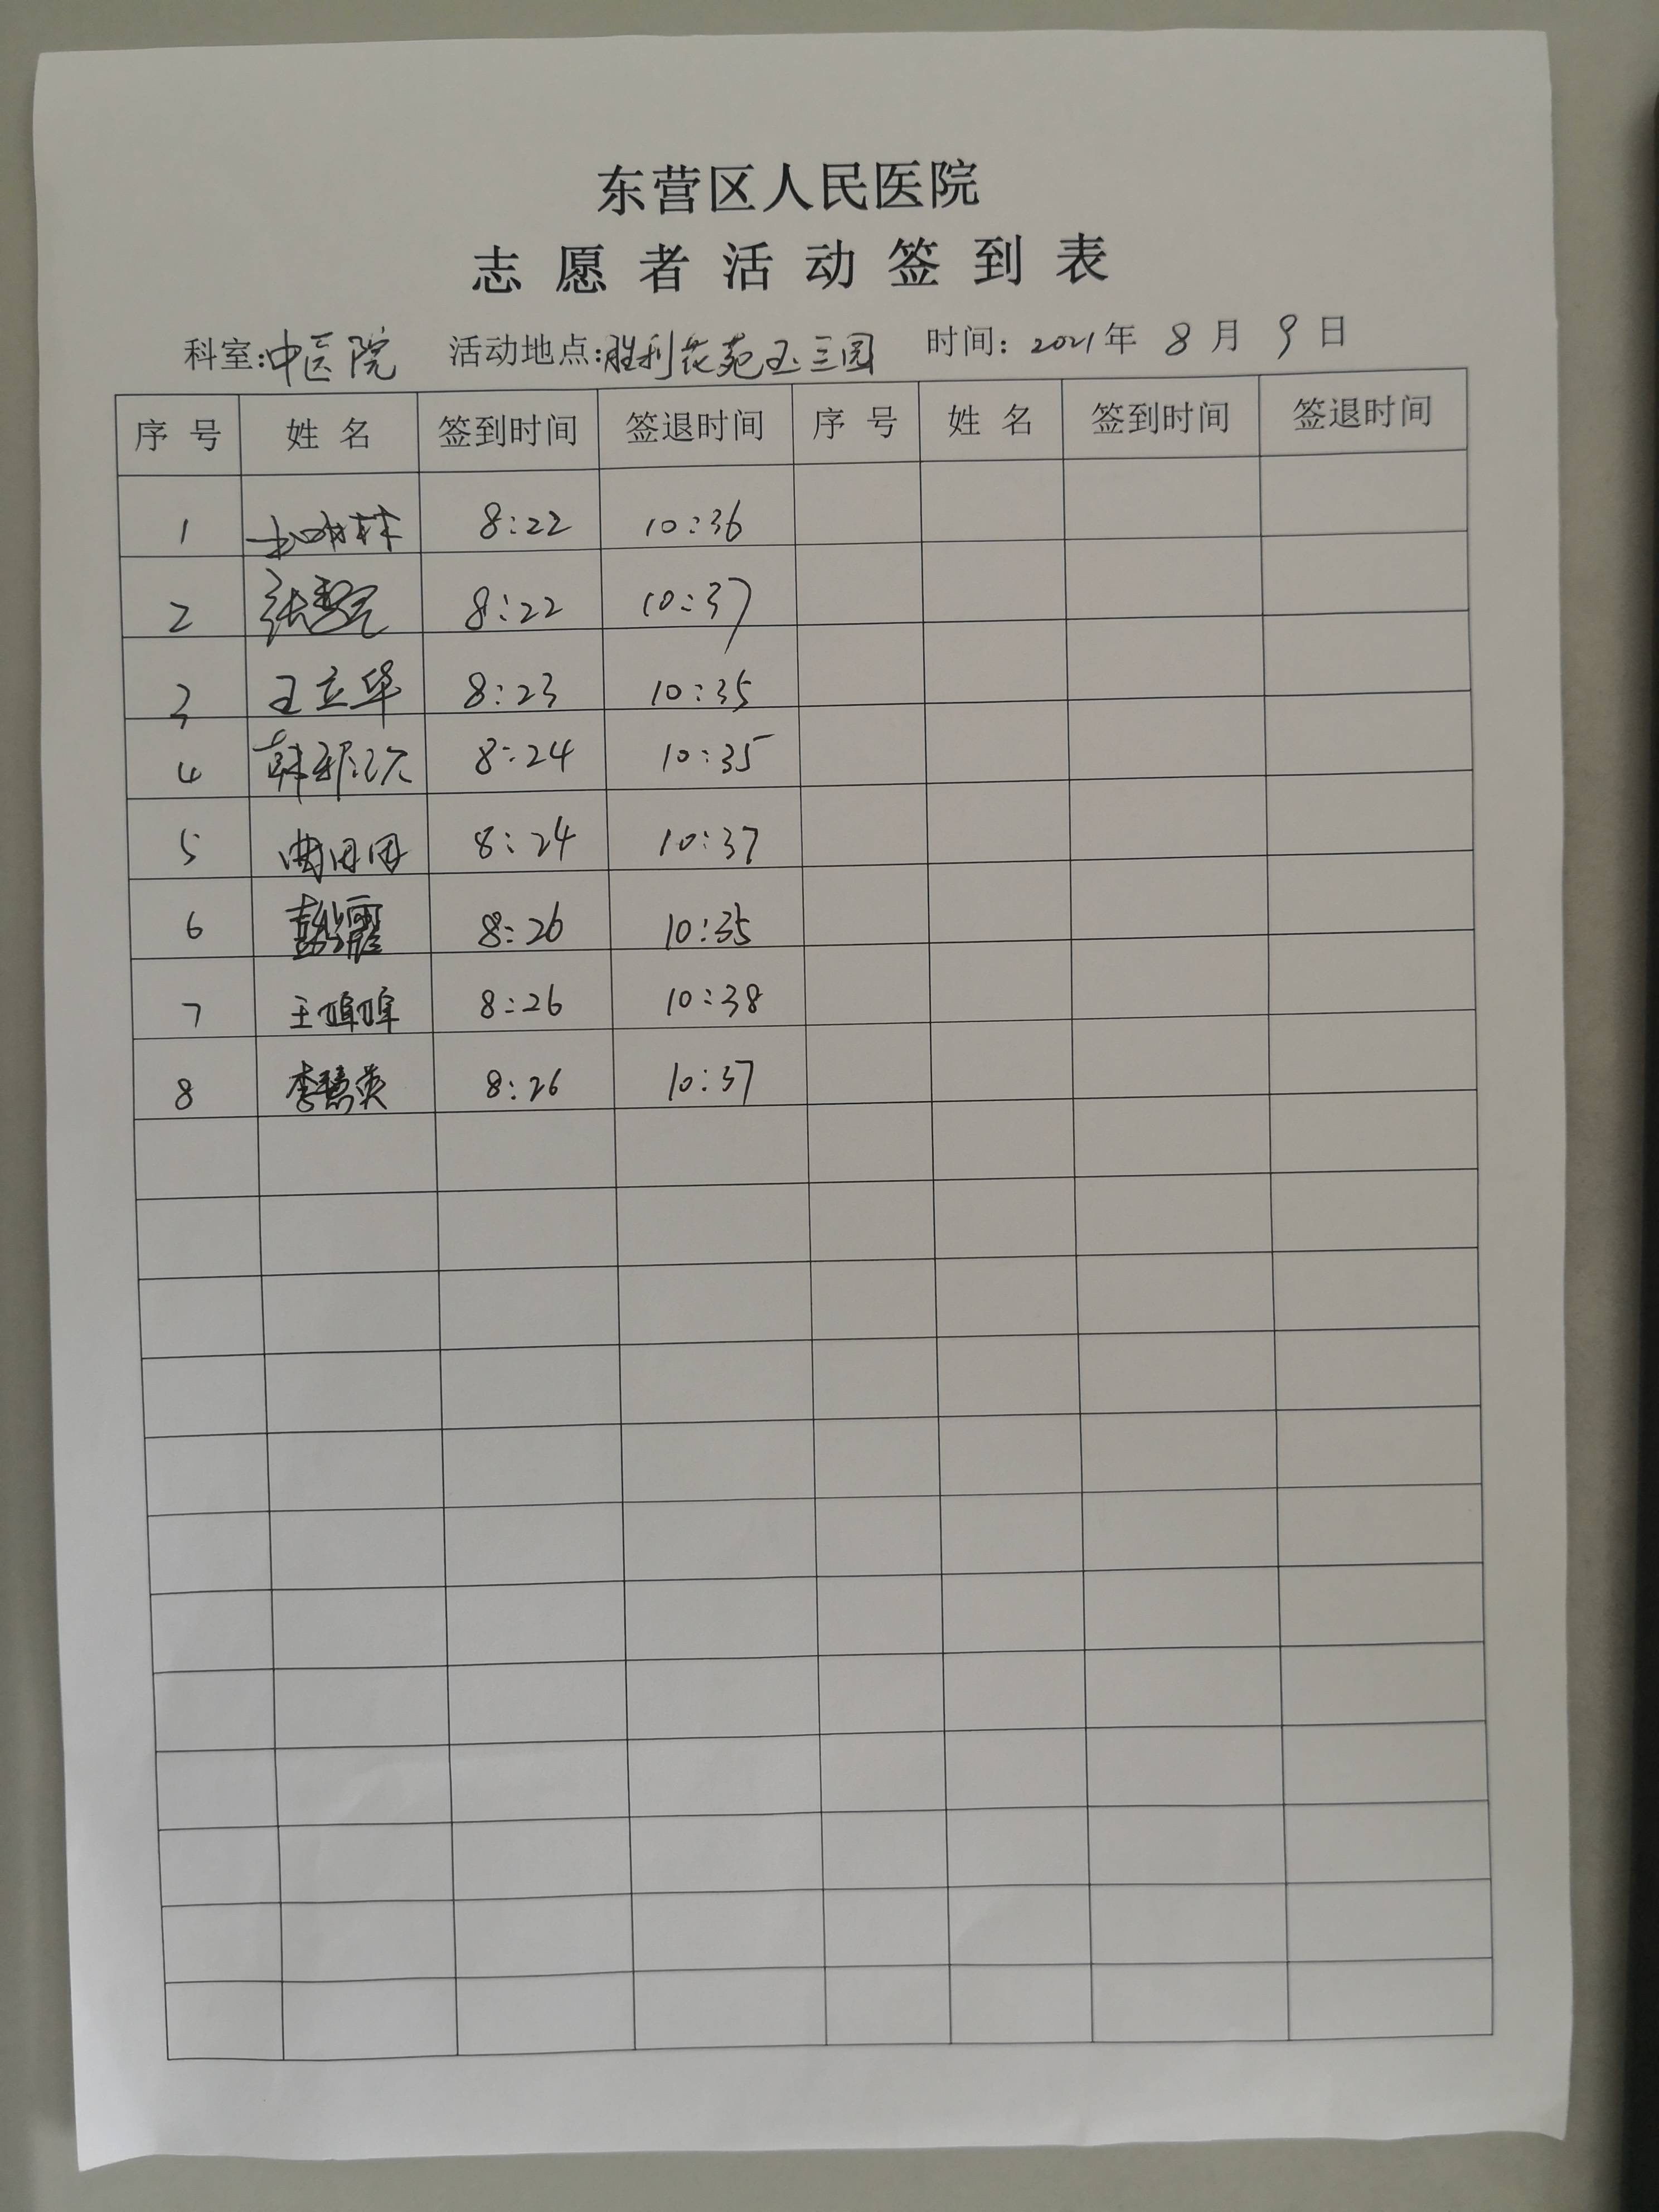 东营区人民医院
志愿者活动签到表
科室:中医院 活动地点:胜利花苑玉三园 时间: 2021年 8月 9日
序号 姓名 签到时间 签退时间 序号 姓名 签到时间 签退时间
1 8:22 10:36
2 张 8:22 10:37
3 王立华 8:23 10:35
4 韩 8:24 10:35
5 8:24 10:37
6 彭 8:26 10:35
7 王 8:26 10:38
8 李慧英 8:26 10:37